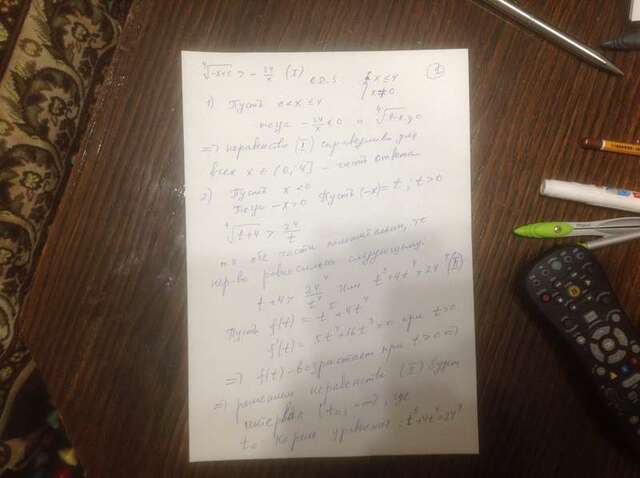 ⁴√-x+4 > - 24/x (I) О.Д.З: { x ≤ 4 ①
x ≠ 0
1) Пусть 0 < x ≤ 4
тогда - 24/x < 0 и ⁴√4-x ≥ 0
=> неравенство (I) справедливо для
всех x ∈ (0; 4] - часть ответа
2) Пусть x < 0
тогда -x > 0 Пусть (-x) = t, t > 0
⁴√t+4 > 24/t
т.к обе части положительны, то
нер-во равносильно следующему:
t + 4 > 24⁴/t⁴ или t⁵ + 4t⁴ > 24⁴ (II)
Пусть f(t) = t⁵ + 4t⁴
f'(t) = 5t⁴ + 16t³ > 0 при t > 0
=> f(t) - возрастает при t > 0 =>
=> решением неравенства (II) будет
интервал (t₀; ∞), где
t₀ корень уравнения: t⁵ + 4t⁴ = 24⁴